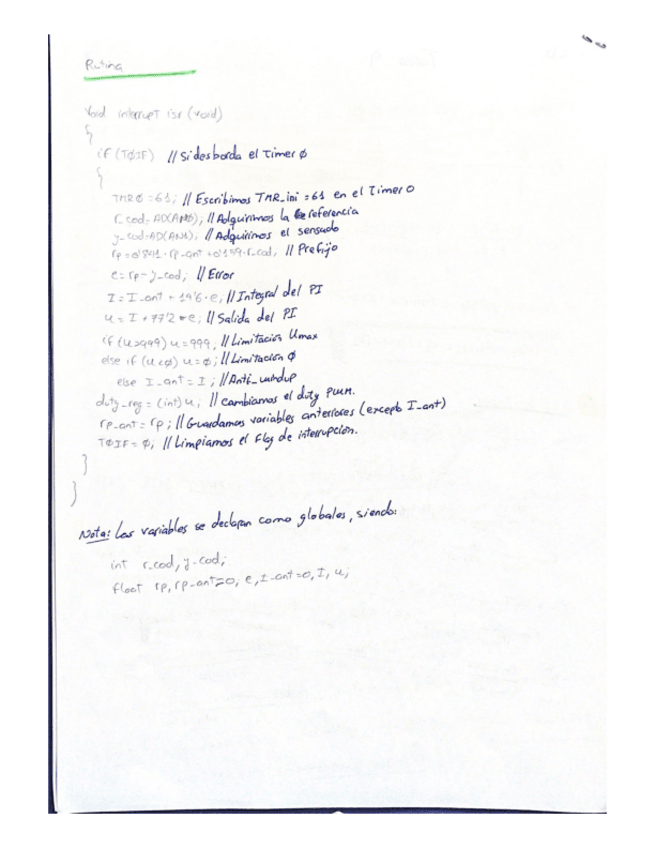 Rutina
Void interrupt isr (void)
{
if (TØIF) // Si desborda el Timer Ø
{
TMRØ = 61; // Escribimos TMR_ini = 61 en el Timer O
r_cod = AD(ANØ); // Adquirimos la referencia
y_cod = AD(AN1); // Adquirimos el sensado
rp = 0'841 · rp_ant + 0'159 · r_cod; // Prefijo
e = rp - y_cod; // Error
I = I_ant + 19'6 · e; // Integral del PI
u = I + 77'2 * e; // Salida del PI
if (u > 999) u = 999; // Limitación Umax
else if (u < Ø) u = Ø; // Limitación Ø
else I_ant = I; // Anti_windup
duty_reg = (int) u; // Cambiamos el duty PWM.
rp_ant = rp; // Guardamos variables anteriores (excepto I_ant)
TØIF = Ø; // Limpiamos el Flag de interrupción.
}
}
Nota: Las variables se declaran como globales, siendo:
int r_cod, y_cod;
float rp, rp_ant=0, e, I_ant=0, I, u;